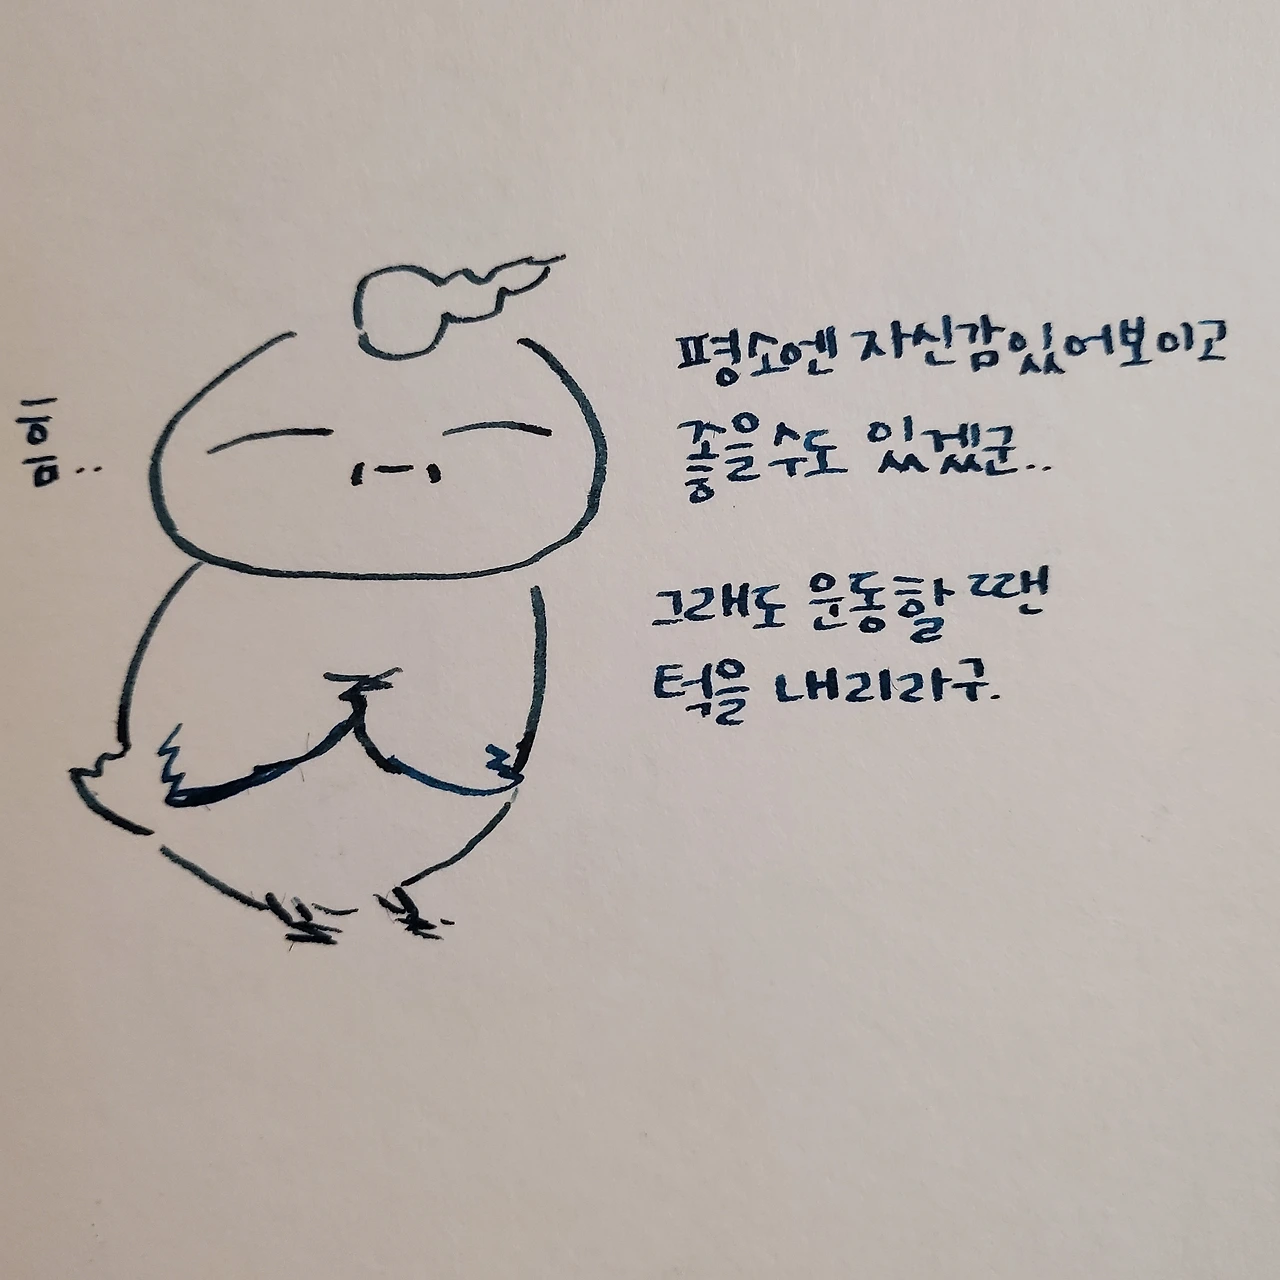 평소엔 자신감있어보이고
좋을수도 있겠군..
그래도 운동할 땐
턱을 내리라구.